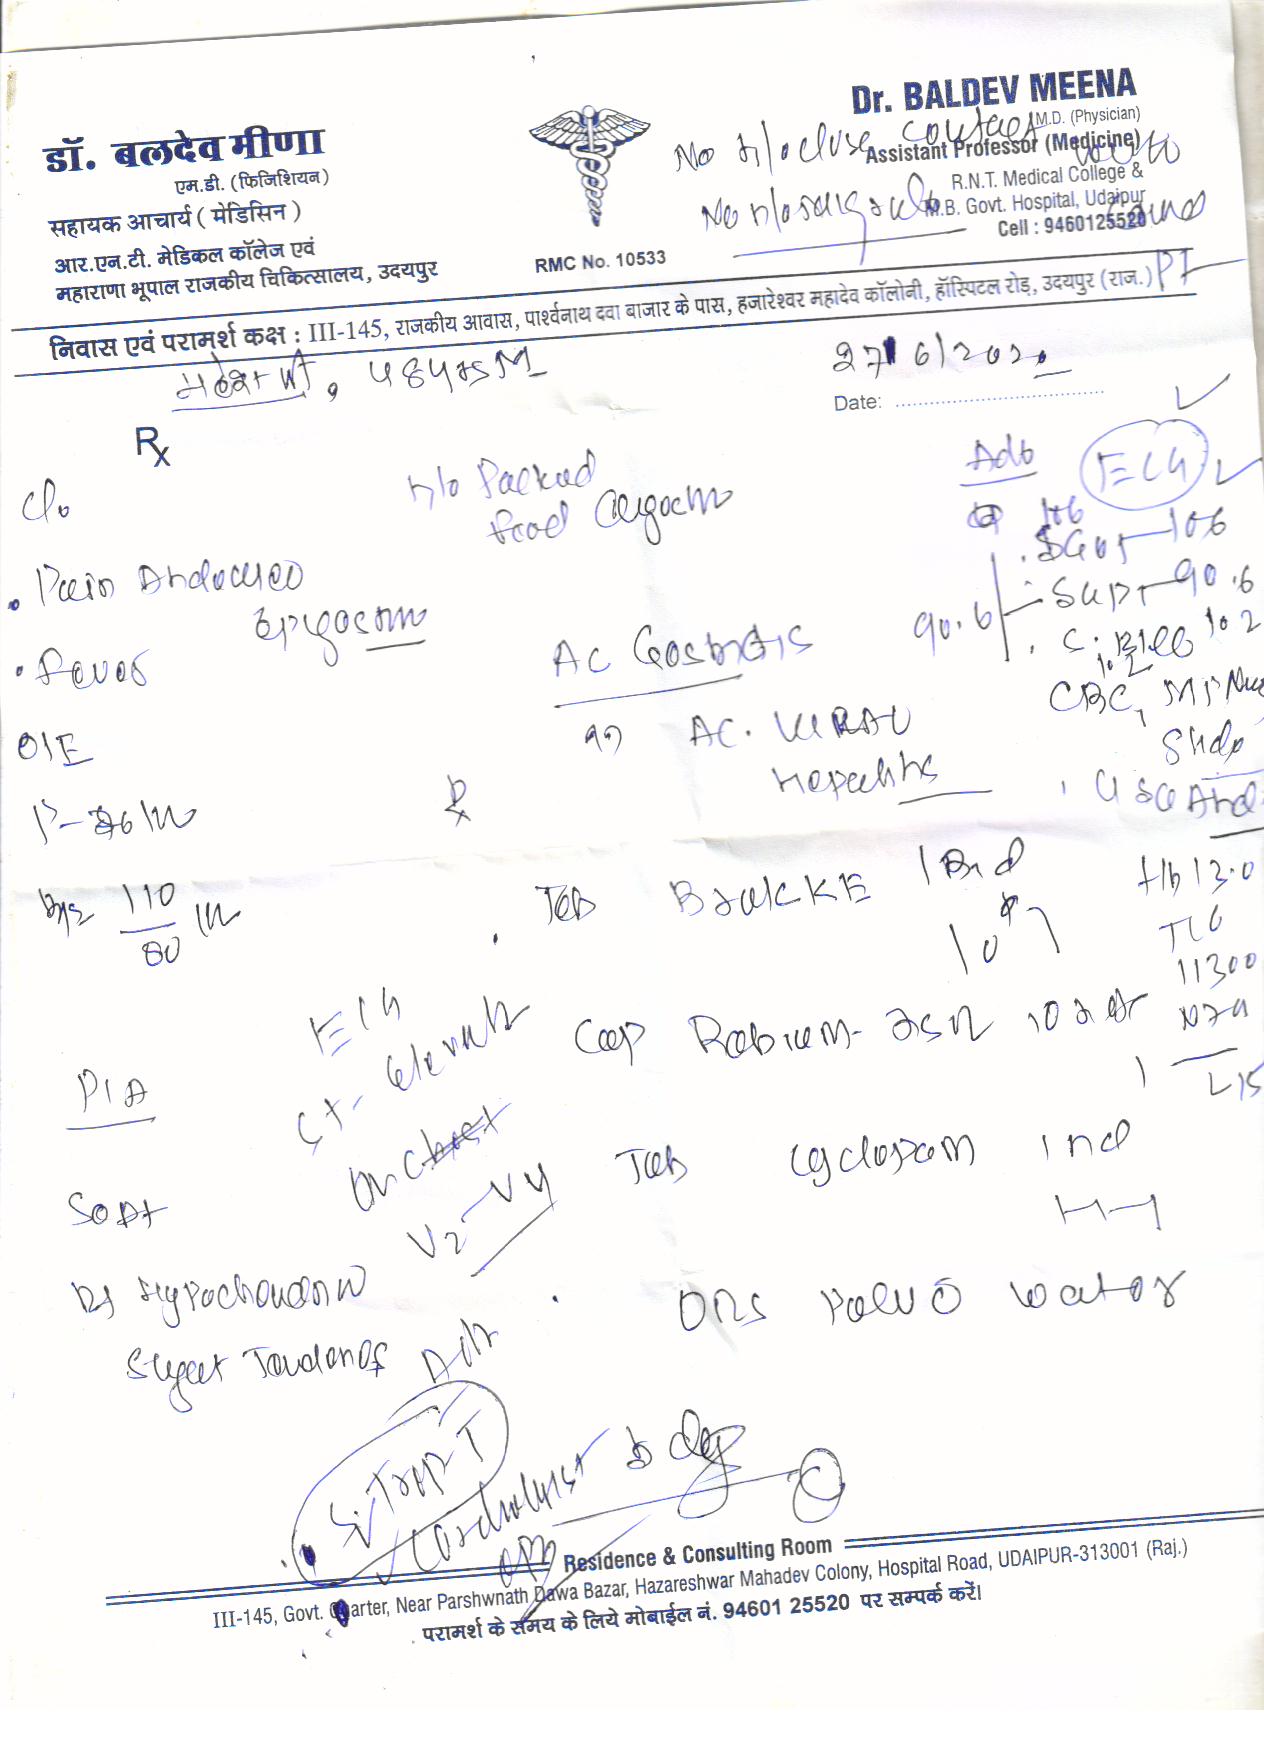 डॉ. बलदेव मीणा
एम.डी. (फिजिशियन)
सहायक आचार्य ( मेडिसिन )
आर.एन.टी. मेडिकल कॉलेज एवं
महाराणा भूपाल राजकीय चिकित्सालय, उदयपुर
RMC No. 10533
Dr. BALDEV MEENA
M.D. (Physician)
Assistant Professor (Medicine)
R.N.T. Medical College &
M.B. Govt. Hospital, Udaipur
Cell : 9460125520
No h/o close contact with
No h/o
PT
निवास एवं परामर्श कक्ष : III-145, राजकीय आवास, पार्श्वनाथ दवा बाजार के पास, हजारेश्वर महादेव कॉलोनी, हॉस्पिटल रोड़, उदयपुर (राज.)
27/6/2020
Date:
Rx
C/o
h/o Packed
food
Adv
ECG
106
SGOT - 106
90.6
SGPT - 90.6
1.2
S. Bili 1.2
Pain Abdomen
Epigastrium
Fever
AC Gastritis
AC. VIRAL
Hepatitis
CBC, MP
Slide
USG Abd
O/E
P-
B/P 110/80
Rx
Tab 1 Bid
Hb 13.0
TLC
11300
N79
L15
Cap Rabium-DSR 10
ECG
ST- elevation
on chest
V2-V4
P/A
Soft
Tab Cyclopam 1 bd
Rt Hypochondrium
Slight Tenderness
ORS water
Adv
S. Trop T
Cardiologist
Residence & Consulting Room
III-145, Govt. Quarter, Near Parshwnath Dawa Bazar, Hazareshwar Mahadev Colony, Hospital Road, UDAIPUR-313001 (Raj.)
परामर्श के समय के लिये मोबाईल नं. 94601 25520 पर सम्पर्क करें।